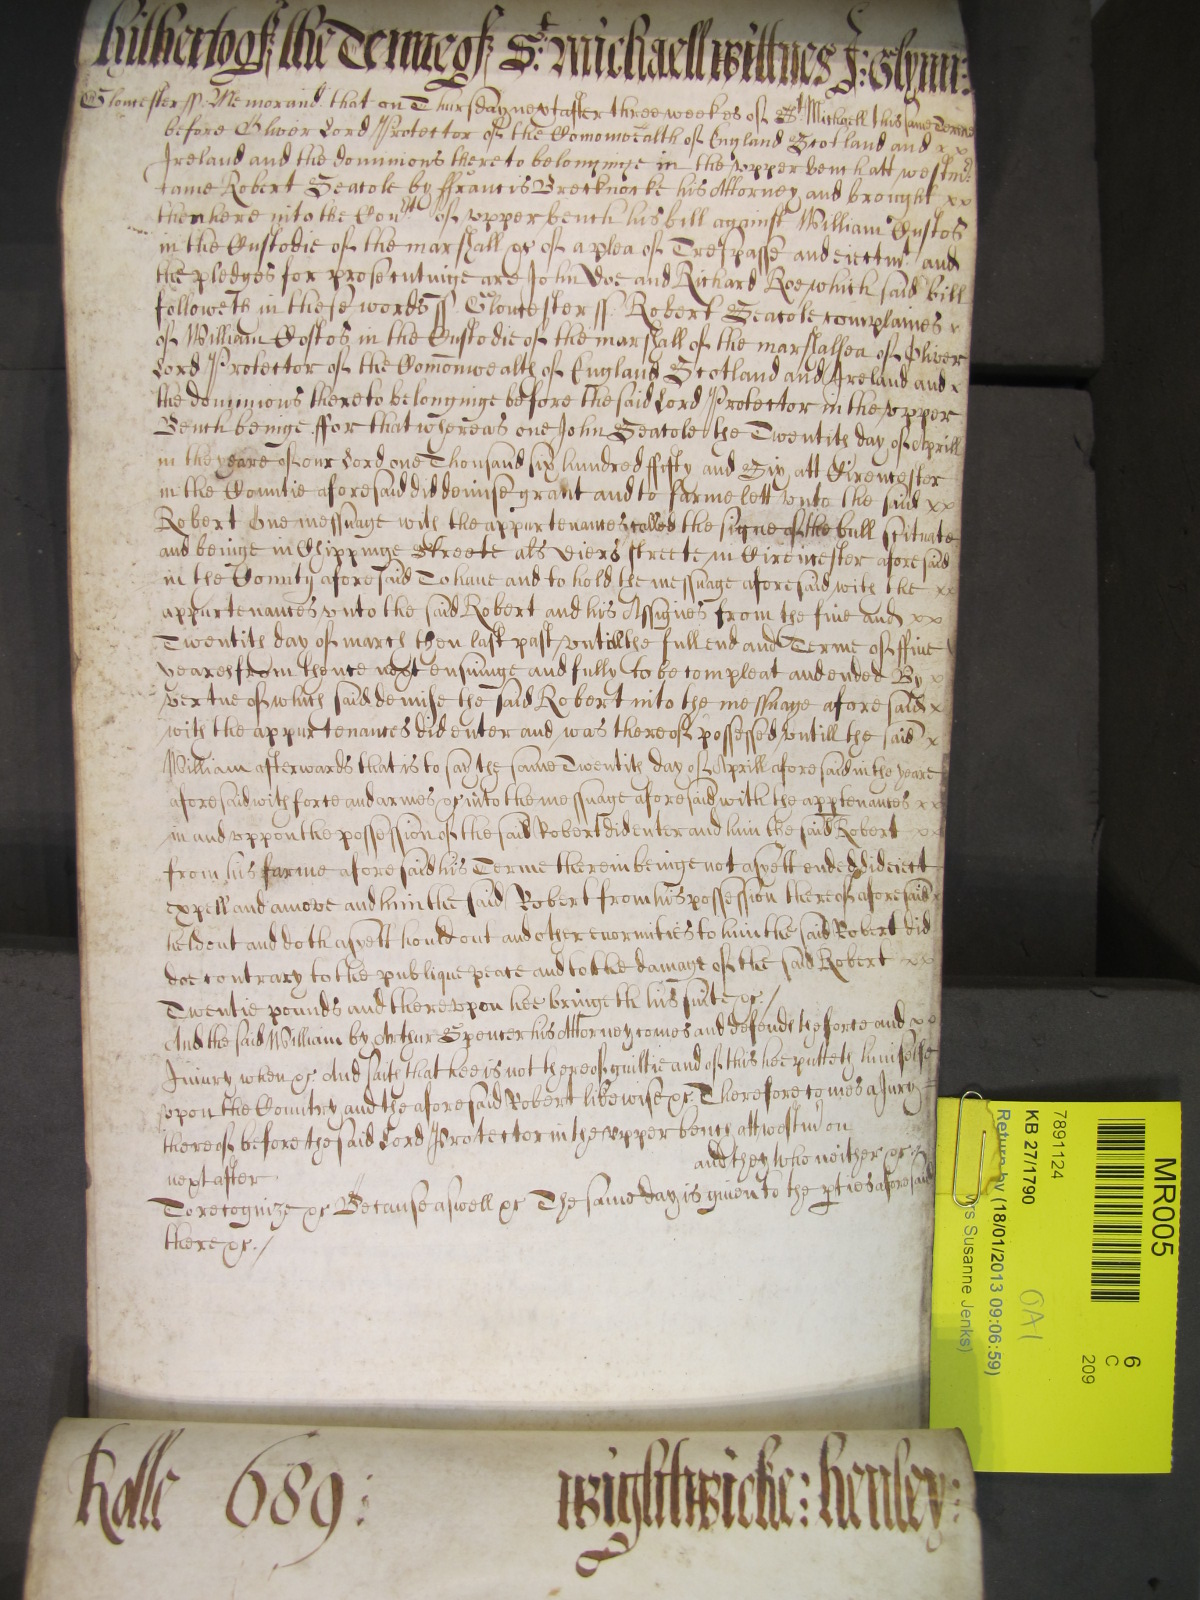 hitherto &c the Terme of St: Michaell wittnes J: Glynn:
Gloucester ss Memorand that on Thursday next after three weekes of St Michaell this same Terme
before Oliver Lord Protector of the Comonwealth of England Scotland and x x
Ireland and the dominions thereto belonginge in the vpper bench att westmr
came Robert Seacole by ffrancis Brecknocke his Attorney and brought xx
then here into the Court of vpper bench his bill against William Custos
in the Custodie of the marshall &c of a plea of Trespasse and eiectmt and
the pledges for prosecutinge are John Doe and Richard Roe which said bill
followeth in these words ss Gloucester ss Robert Seacole complaines x
of William Costos in the Custodie of the marshall of the marshalsea of Oliver
Lord Protector of the Comonwealth of England Scotland and Ireland and x
the dominions thereto belonginge before the said Lord Protector in the vpper
Bench beinge ffor that whereas one John Seacole the Twentith day of Aprill
in the yeare of our Lord one Thousand six hundred fifty and Six att Cirencester
in the Countie aforesaid did demise grant and to farme lett vnto the said xx
Robert One messuage with the appurtenances called the signe of the bull scituate
and beinge in Chippinge Streete als viers streete in Cirencester aforesaid
in the County aforesaid To haue and to hold the messuage aforesaid with the xx
appurtenances vnto the said Robert and his Assignes from the fiue and xx
Twentith day of march then last past vntill the full end and Terme of ffiue
yeares from thence next ensuinge and fully to be compleat and ended By x
vertue of which said demise the said Robert into the messuage aforesaid x
with the appurtenances did enter and was thereof possessed vntill the said x
William afterwards that is to say the same Twentith day of Aprill aforesaid in the yeare
aforesaid with force and armes &c into the messuage aforesaid with the apptenances xx
in and vppon the possession of the said Robert did enter and him the said Robert xx
from his farme aforesaid his Terme therein beinge not as yett ended did eiect
expell and amove and him the said Robert from his possession thereof aforesaid x
held out and doth as yett hould out and other enormities to him the said Robert did
doe contrary to the publique peace and to the damage of the said Robert xx
Twentie pounds and therevpon hee bringeth his suite &c /
And the said William by Arthur Spencer his Attorney comes and defends the force and xx
Iniury when &c And saith that hee is not thereof guiltie and of this hee putteth himselfe
vpon the Country and the aforesaid Robert likewise &c Therefore comes a Jury
thereof before the said Lord Protector in the vpper bench att westm on
next after and they who neither &c
To recognize &c Because aswell &c The same day is giuen to the pties aforesaid
there &c /
Rolle 689: wightwicke: henley:
MR005
6
C
209
7891124
KB 27/1790
OA1
Return by (18/01/2013 09:06:59)
Mrs Susanne Jenks)